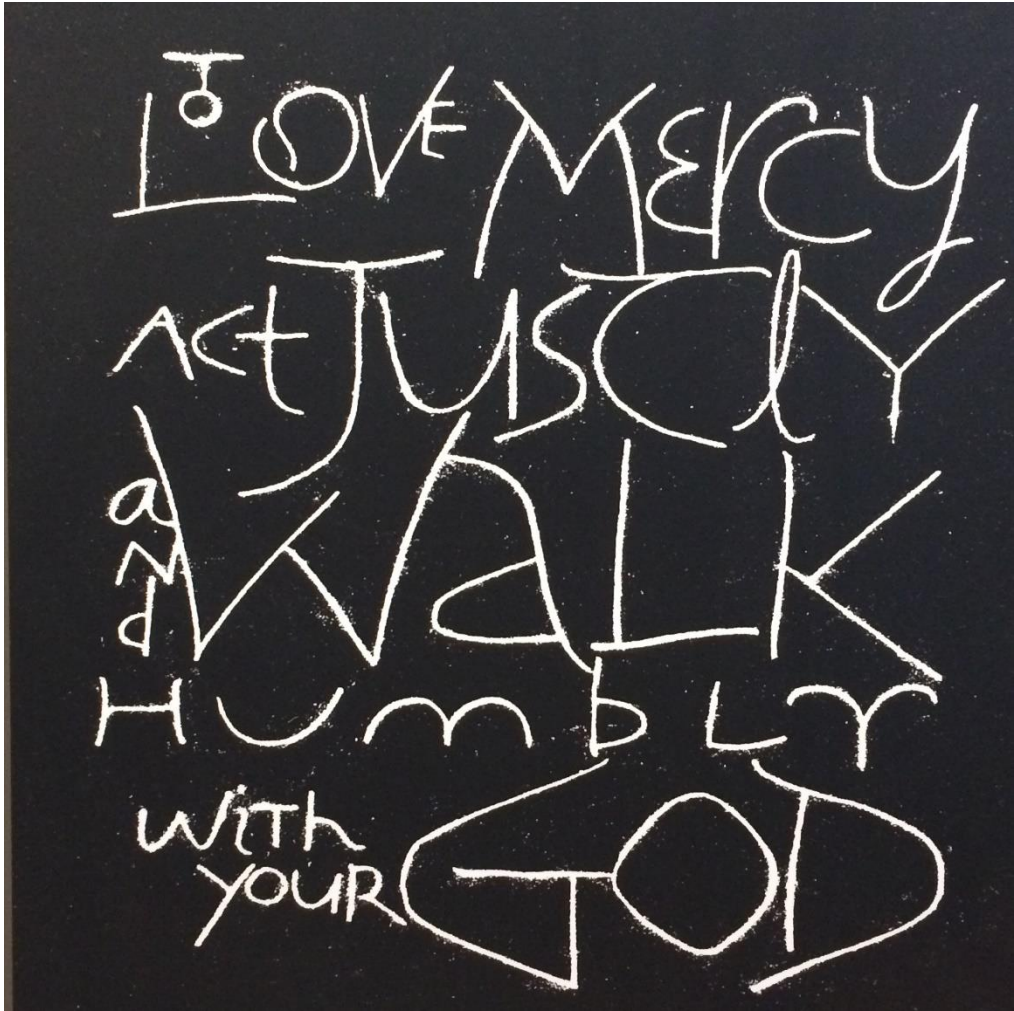 To LOVE MERCY
ACt JUSTlY
aNd WALK
HUMbLY
WiTh
YOUR GOD